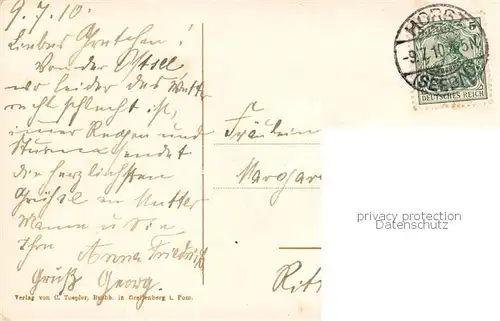 9.7.10.
Liebes Gretchen!
Von der Ostsee
wo leider das Wetter
recht schlecht ist,
immer Regen und
Sturm sendet
die herzlichsten
Grüße an Mutter
Mann u Sie
Ihre
Anna Friedrich
Gruß Georg.
Verlag von C. Toepler, Buchh. in Greifenberg i. Pom.
HORST
-9.7.10
(SEEBAD)
DEUTSCHES REICH
Fräulein
Margar
privacy protection
Datenschutz
Ritt